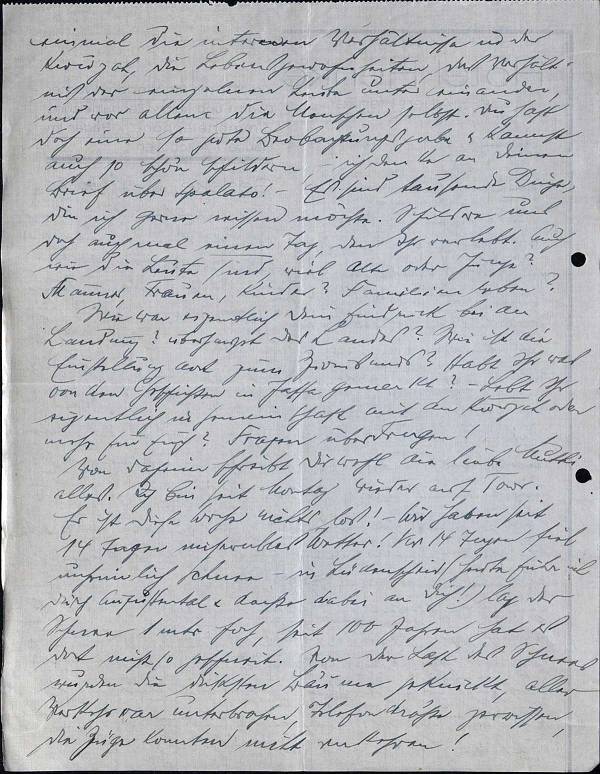 einmal die internen Verhältnisse u. der
Kwuzah, die Lebensgewohnheiten, das Verhält-
nis der einzelnen Leute unter einander,
und vor allem die Menschen selbst. Du hast
doch eine so gute Beobachtungsgabe u. kannst
auch so schön schildern ich denke an Deinen
Brief über Spalato! – Es sind tausende Dinge,
die ich gerne wissen möchte. Schildre uns
doch auch mal einen Tag, den Ihr verlebt. Auch
wie die Leute sind, viel Alte oder Junge?
Männer, Frauen, Kinder? Familienleben?
Wie war eigentlich Dein Eindruck bei der
Landung? überhaupt des Landes? Wie ist die
Einstellung dort zum Zionismus? Habt Ihr was
von den Geschichten in Jaffa gemerkt? – Lebt Ihr
eigentlich in Gemeinschaft mit der Kwuzah oder
mehr für Euch? Fragen über Fragen!
Von daheim schreibt Dir wohl die liebe Mutti
alles. Ich bin seit Montag wieder auf Tour.
Es ist diese Woche nichts los! – Wir haben seit
14 Tagen miserables Wetter! Vor 14 Tagen fiel
unheimlich Schnee – in Lüdenscheid (heute fuhr ich
durch u. dachte dabei an Dich!) lag der
Schnee 1 mtr hoch, seit 100 Jahren hat es
dort nicht so geschneit. Von der Last des Schnees
wurden die dicksten Bäume geknickt, aller
Verkehr war unterbrochen, Telefondrähte zerrissen,
die Züge konnten nicht verkehren!